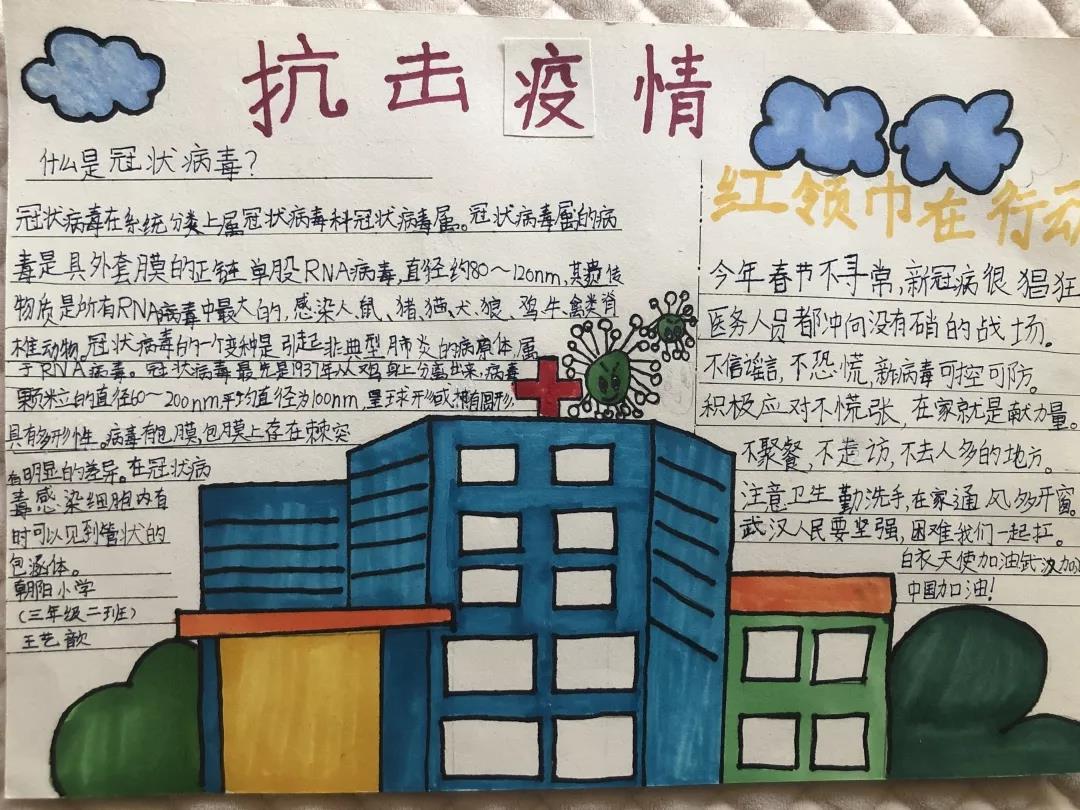 抗击疫情
什么是冠状病毒?
冠状病毒在系统分类上属冠状病毒科冠状病毒属。冠状病毒属的病
毒是具外套膜的正链单股RNA病毒,直径约80～120nm,其遗传
物质是所有RNA病毒中最大的,感染人、鼠、猪、猫、犬、狼、鸡、牛、禽类脊
椎动物。冠状病毒的一个变种是引起非典型肺炎的病原体,属
于RNA病毒。冠状病毒最先是1937年从鸡身上分离出来,病毒
颗粒的直径60～200nm,平均直径为100nm,呈球形或椭圆形,
具有多形性。病毒有包膜,包膜上存在棘突
有明显的差异。在冠状病
毒感染细胞内有
时可以见到管状的
包涵体。
朝阳小学
(三年级二班)
王艺歆
红领巾在行动
今年春节不寻常,新冠病很猖狂
医务人员都冲向没有硝的战场。
不信谣言,不恐慌,新病毒可控可防。
积极应对不慌张,在家就是献力量。
不聚餐,不走访,不去人多的地方。
注意卫生勤洗手,在家通风多开窗。
武汉人民要坚强,困难我们一起扛。
白衣天使加油武汉加油
中国加油!